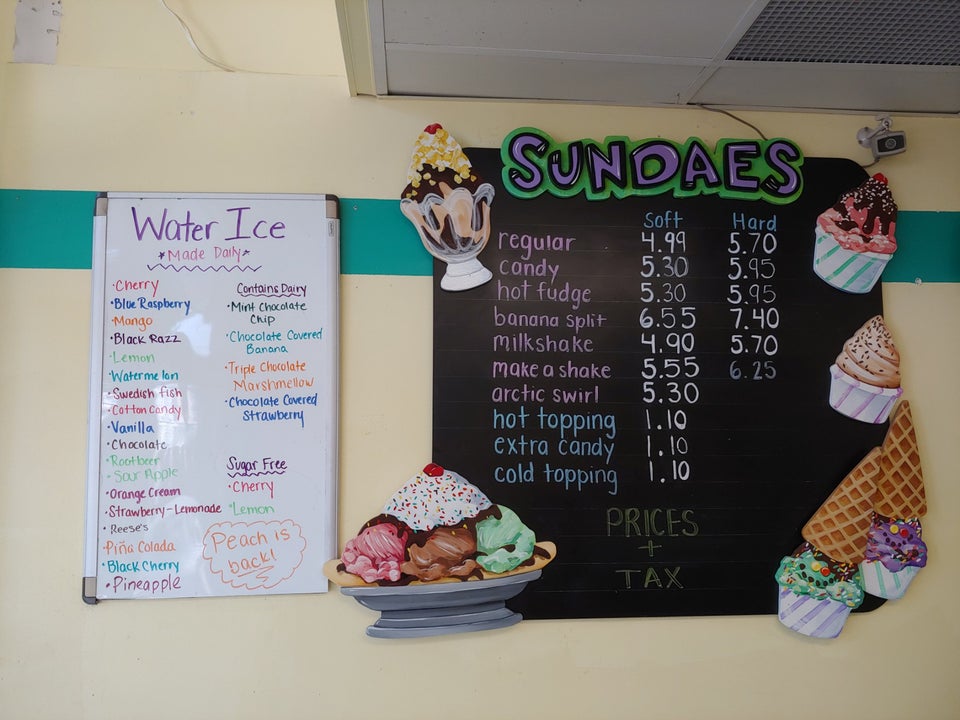 Water Ice
*Made Daily*
•Cherry
•Blue Raspberry
•Mango
•Black Razz
•Lemon
•Watermelon
•Swedish fish
•Cotton Candy
•Vanilla
•Chocolate
•Rootbeer
•Sour Apple
•Orange Cream
•Strawberry-Lemonade
•Reese's
•Piña Colada
•Black Cherry
•Pineapple
Contains Dairy
•Mint Chocolate
Chip
•Chocolate Covered
Banana
•Triple Chocolate
Marshmellow
•Chocolate Covered
Strawberry
Sugar Free
•Cherry
•Lemon
Peach is
back!
SUNDAES
Soft Hard
regular 4.99 5.70
candy 5.30 5.95
hot fudge 5.30 5.95
banana split 6.55 7.40
milkshake 4.90 5.70
make a shake 5.55 6.25
arctic swirl 5.30
hot topping 1.10
extra candy 1.10
cold topping 1.10
PRICES
+
TAX